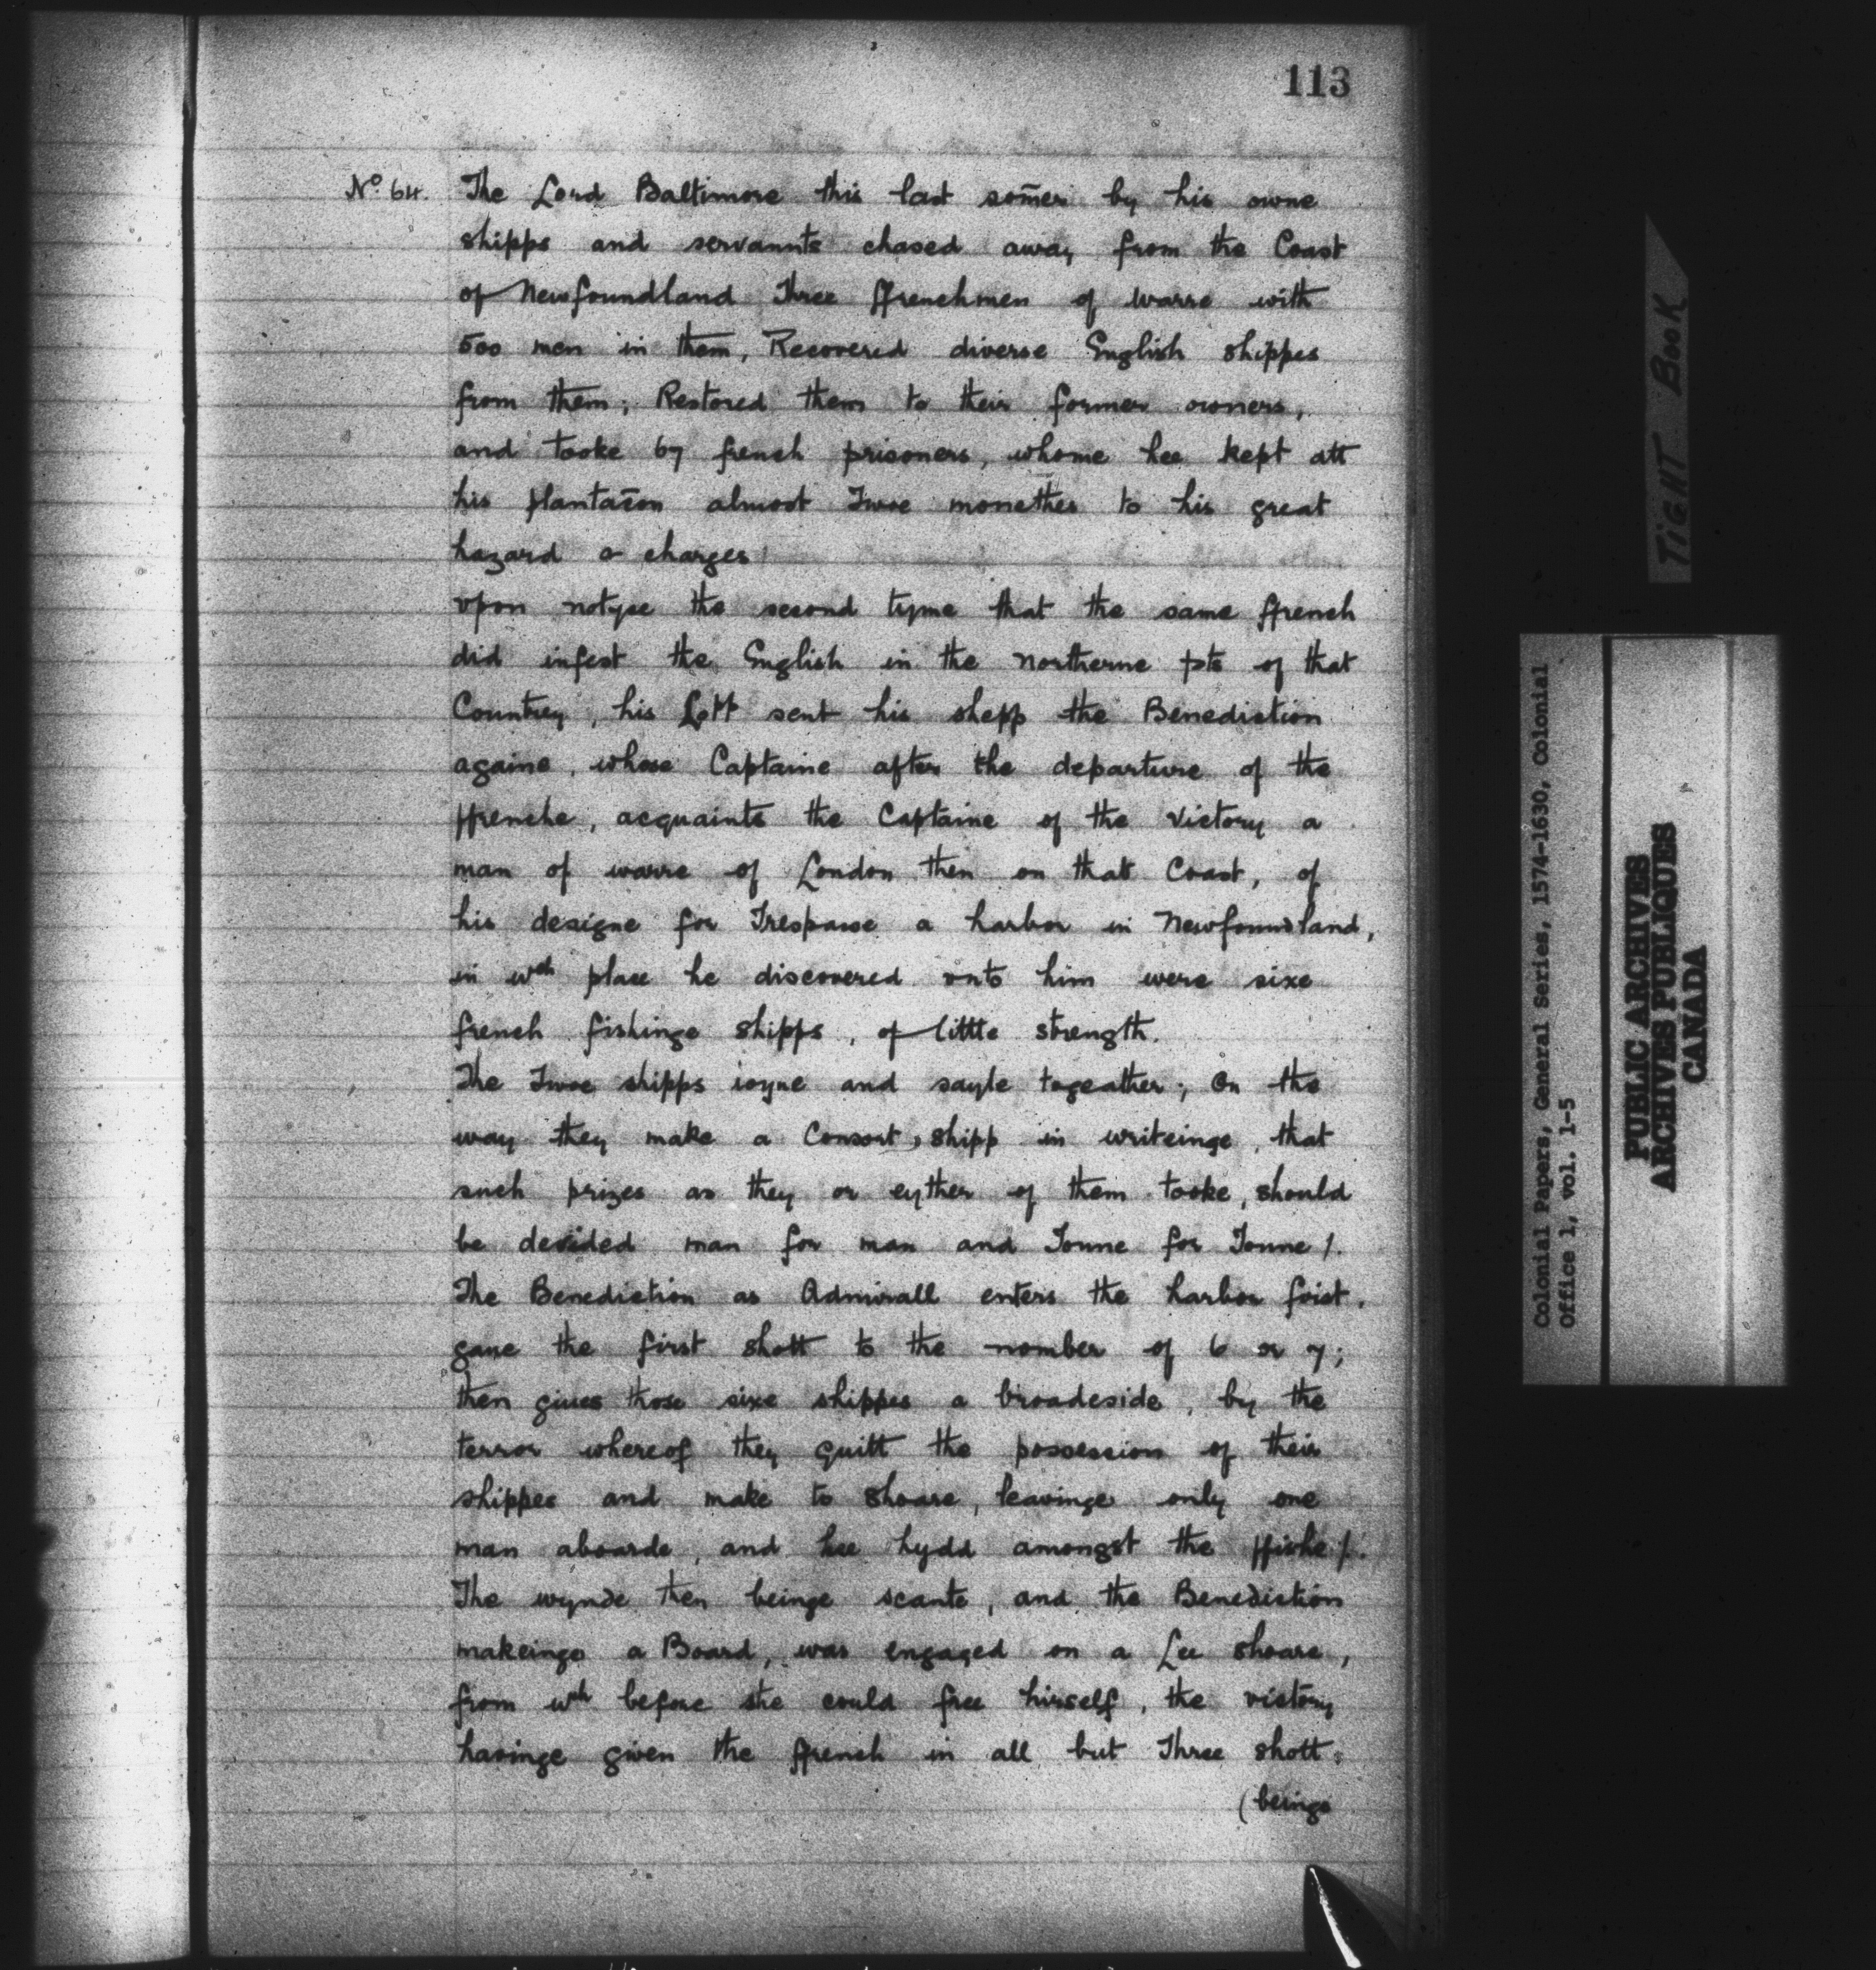 113
No. 64. The Lord Baltimore this last som̄er by his owne
shipps and servannts chased away from the Coast
of Newfoundland Three ffrenchmen of warre with
500 men in them, Recovered diverse English shippes
from them; Restored them to their former owners,
and tooke 67 french prisoners, whome hee kept att
his plantac̄on almost Twoe monethes to his great
hazard & charges
vpon notyce the second tyme that the same ffrench
did infest the English in the northerne pts of that
Countrey, his Lopp sent his shepp the Benediction
againe, whose Captaine after the departure of the
ffrenche, acquaints the Captaine of the Victory a
man of warre of London then on that Coast, of
his designe for Trespasse a harbor in Newfoundland,
in wch place he discovered vnto him were sixe
french fishinge shipps, of little strength.
The Twoe shipps ioyne and sayle togeather; On the
way they make a Consort, shipp in writeinge, that
such prizes as they or eyther of them tooke, should
be devided man for man and Tonne for Tonne /.
The Benediction as Admirall enters the harbor foist,
gaue the first shott to the nomber of 6 or 7;
then giues those sixe shippes a broadeside, by the
terror whereof they quitt the possession of their
shippes and make to shoare, leavinge only one
man aboarde, and hee hydd amongst the ffishe /.
The wynde then beinge scante, and the Benediction
makeinge a Board, was engaged on a Lee shoare,
from wch before she could free hirself, the victory
havinge given the ffrench in all but Three shott;
(beinge
TIGHT BOOK
Colonial Papers, General Series, 1574-1630, Colonial
Office 1, vol. 1-5
PUBLIC ARCHIVES
ARCHIVES PUBLIQUES
CANADA